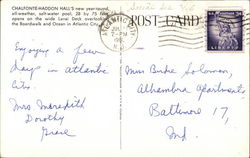 CHALFONTE-HADDON HALL'S new year-round,
all-weather, salt-water pool, 28 by 75 feet
opens on the wide Lanai Deck overlooking
the Boardwalk and Ocean in Atlantic City.
POST CARD
ATLANTIC CITY
7-PM
N.J.
LIBERTY
Enjoying a few
days in atlantic
City.
Mrs Meredith
Dorothy
Grace
Miss Birke Solomon,
Alhambra Apartments
Baltimore 17,
Md.